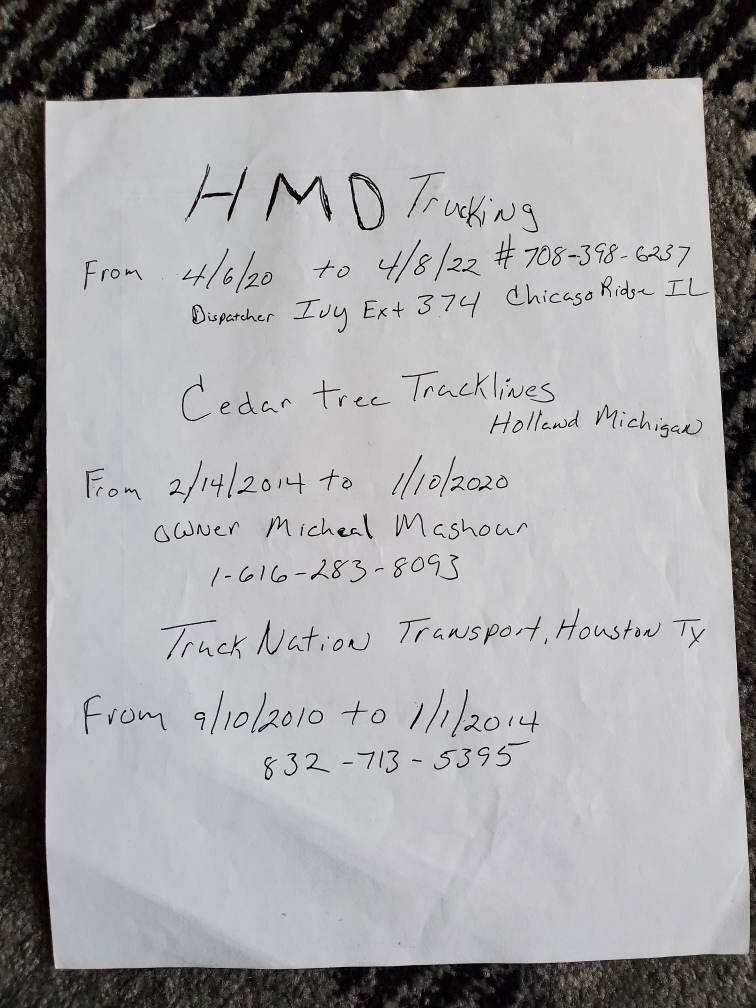 HMD Trucking
From 4/6/20 to 4/8/22 # 708-398-6237
Dispatcher Ivy Ext 374 Chicago Ridge IL
Cedar tree Trucklines
Holland Michigan
From 2/14/2014 to 1/10/2020
owner Micheal Mashour
1-616-283-8093
Truck Nation Transport, Houston Tx
From 9/10/2010 to 1/1/2014
832-713-5395